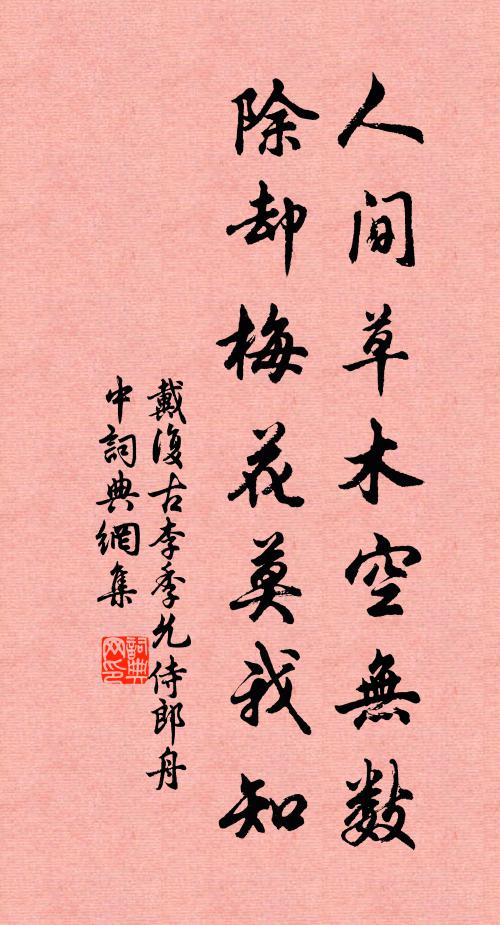 人間草木空無數
除却梅花莫我知
戴復古李季允侍郎舟
中詞典網集
詞典
网印